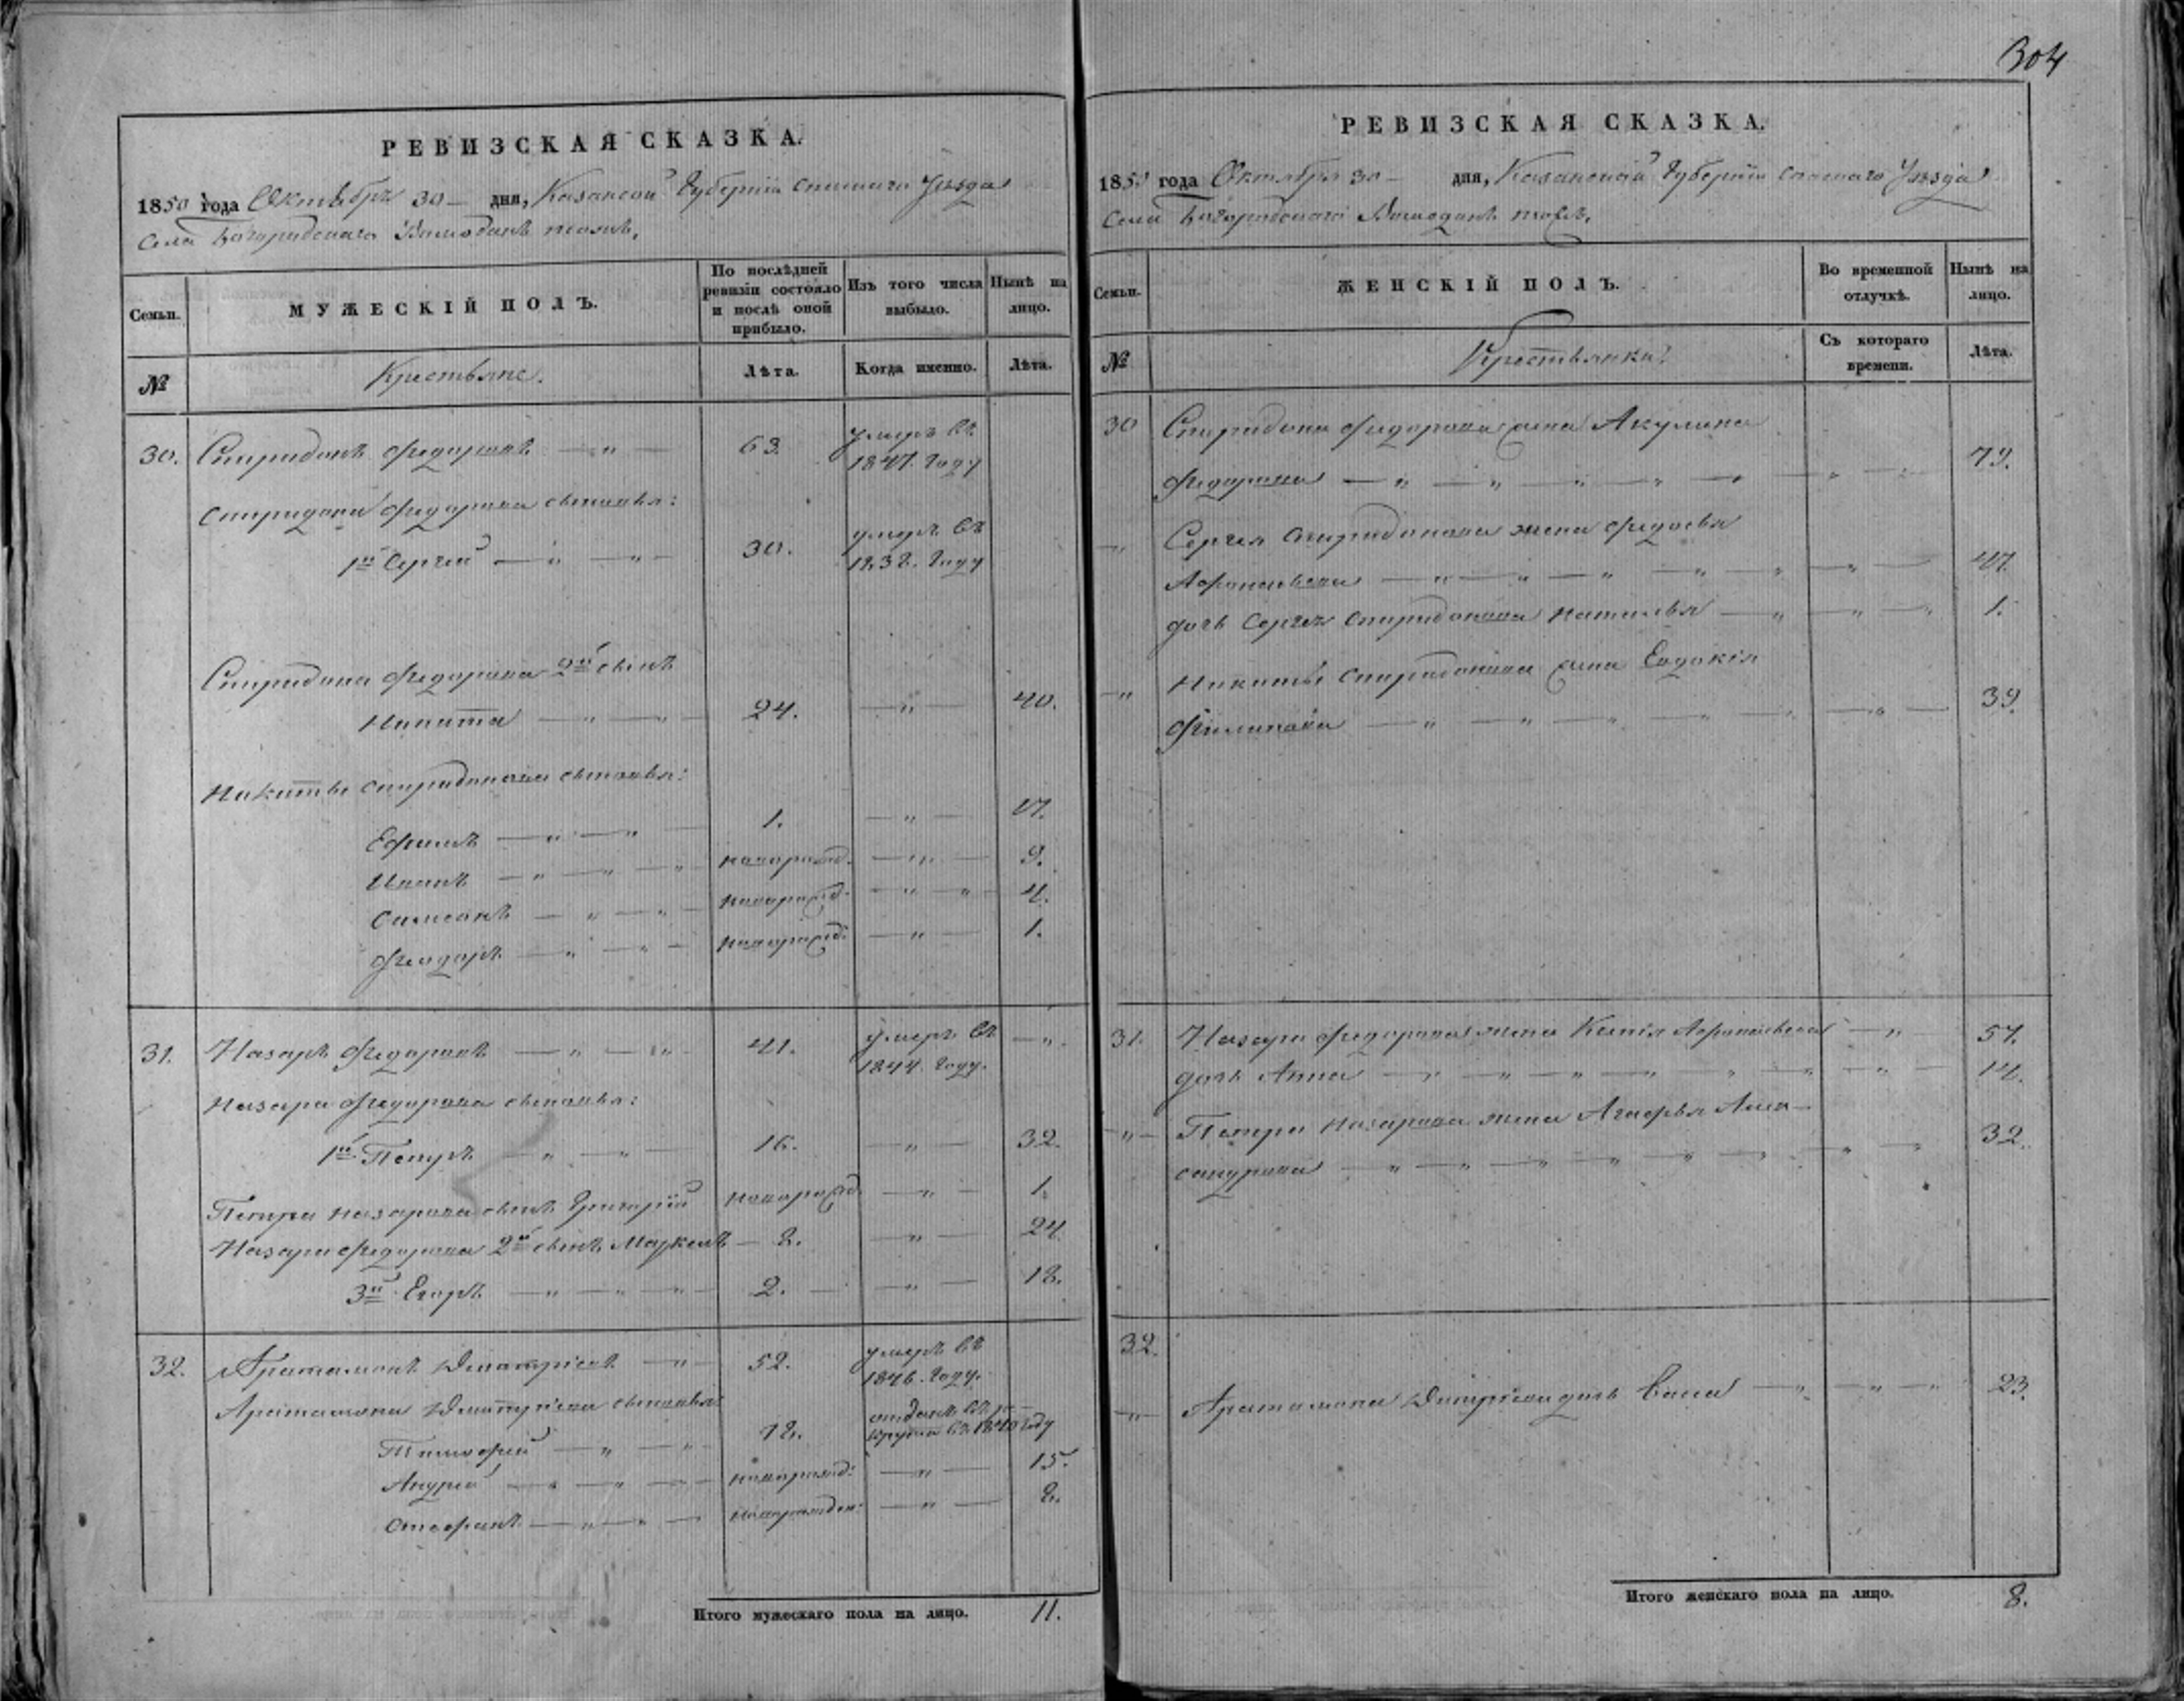 304
РЕВИЗСКАЯ СКАЗКА.
1850 года Октября 30 дня, Казанской Губернии Спасскаго Уѣзда
Села Богородскаго тожъ.
Семьи.
МУЖЕСКІЙ ПОЛЪ.
По послѣдней ревизіи состояло и послѣ оной прибыло.
Изъ того числа выбыло.
Нынѣ на лицо.
№
Крестьяне.
Лѣта.
Когда именно.
Лѣта.
30. Спиридонъ Федоровъ — " — 63. умеръ въ 1847. году
Спиридона Федорова сыновья:
1й Сергей — " — " — 30. умеръ въ 1838. году
Спиридона Федорова 2й сынъ
Никита — " — " — 24. — " — 40.
Никиты Спиридонова сыновья:
Ефимъ — " — " — 1. — " — 17.
Иванъ — " — " — " новорожд. — " — 9.
Самсонъ — " — " — новорожд: — " — " 4.
Феодоръ — " — " — новорожд: — " — 1.
31. Назаръ Федоровъ — " — " — 41. умеръ въ 1844. году. — "
Назара Федорова сыновья:
1й Петръ — " — " — 16. — " — 32.
Петра Назарова сынъ Григорій новорожд — " — 1.
Назара Федорова 2й сынъ Маркелъ — 8. — " — 24
3й Егоръ — " — " — " — 2. — " — 18.
32. Артамонъ Дмитріевъ — " — 52. умеръ въ 1846. году.
Артамона Дмитріева сыновья:
Тимофей — " — " 18. отданъ въ рекруты въ 1840 году
Андрей — " — " — новорожд: — " — 15.
Стефанъ — " — " — новорожден: — " — 8.
Итого мужескаго пола на лицо. 11.
РЕВИЗСКАЯ СКАЗКА.
1850 года Октября 30 — дня, Казанской Губерніи Спасскаго Уѣзда
Села Богородскаго тожъ.
Семьи.
ЖЕНСКІЙ ПОЛЪ.
Во временной отлучкѣ.
Нынѣ на лицо.
№
Крестьянки.
Съ котораго времени.
Лѣта.
30 Спиридона Федорова жена Акулина
Федорова — " — " — " — " — " — 79.
" Сергея Спиридонова жена Федосья
Афонасьева — " — " — " — " — " — 47.
дочь Сергея Спиридонова Наталья — " — " — " 1.
" Никиты Спиридонова жена Евдокія
Филипова — " — " — " — " — " — 39.
31. Назара Федорова жена Афонасьева — " 57.
дочь Анна — " — " — " — " — " — 14.
" Петра Назарова жена Агафья Алек-
сандрова — " — " — " — " — " — 32.
32.
" Артамона Дмитріева дочь Васса — " — " — " 23.
Итого женскаго пола на лицо. 8.